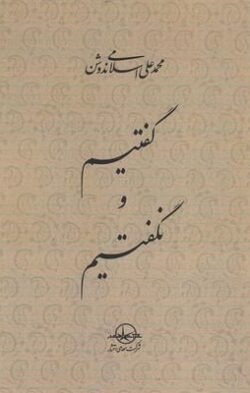 محمدعلی اسلامی ندوشن
گفتیم
و
نگفتیم
شرکت سهامی انتشار